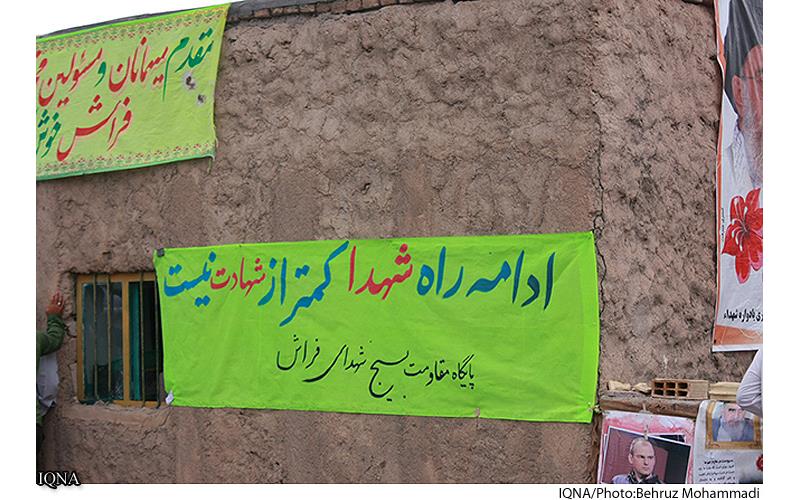 مقدم میهمانان و مسئولین
فراش خوش
ادامه راه شهدا کمتر از شهادت نیست
پایگاه مقاومت بسیج شهدای فراش
یادواره شهداء
IQNA
IQNA/Photo:Behruz Mohammadi